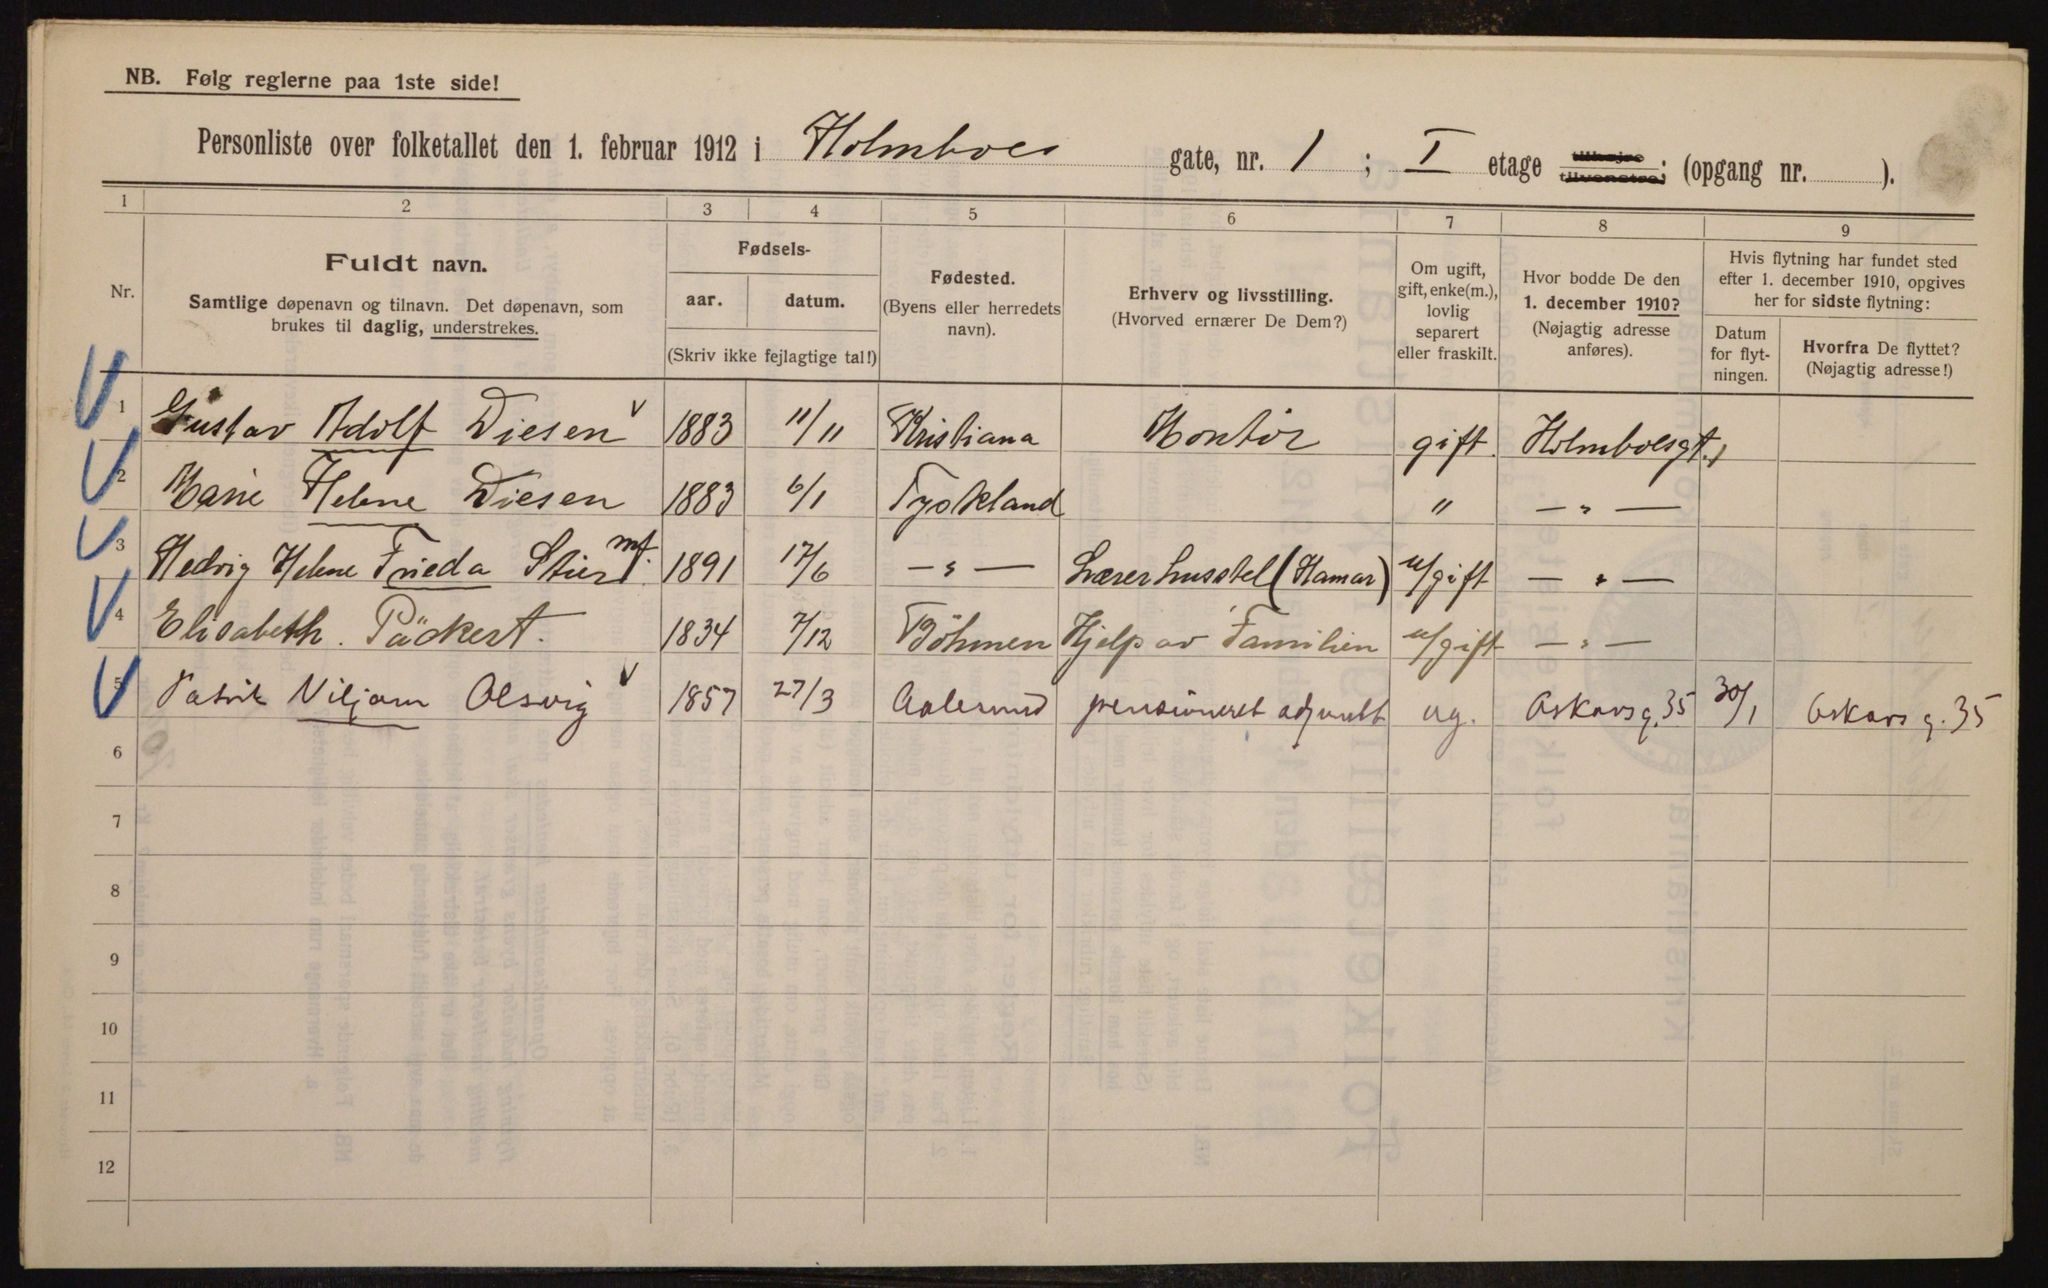 NB. Følg reglerne paa 1ste side!
Personliste over folketallet den 1. februar 1912 i Holmboes gate, nr. 1 ; I etage tilhøjre tilvenstre; (opgang nr. ).
1 2 3 4 5 6 7 8 9
Nr.
Fuldt navn.
Samtlige døpenavn og tilnavn. Det døpenavn, som
brukes til daglig, understrekes.
Fødsels-
aar. datum.
(Skriv ikke fejlagtige tal!)
Fødested.
(Byens eller herredets
navn).
Erhverv og livsstilling.
(Hvorved ernærer De Dem?)
Om ugift,
gift, enke(m.),
lovlig
separert
eller fraskilt.
Hvor bodde De den
1. december 1910?
(Nøjagtig adresse
anføres).
Hvis flytning har fundet sted
efter 1. december 1910, opgives
her for sidste flytning:
Datum
for flyt-
ningen.
Hvorfra De flyttet?
(Nøjagtig adresse!)
1 Gustav Adolf Diesen 1883 11/11 Kristiana Montør gift Holmboesgt. 1
2 Marie Helene Diesen 1883 6/1 Tyskland " — " —
3 Hedvig Helene Frieda 1891 17/6 — " — (Hamar) u/gift — " —
4 Elisabeth. Päckert. 1834 7/12 Böhmen Hjelp av Familien u/gift — " —
5 Patrik Viljam Olsvig 1857 27/3 Aalesund pensioneret adjunkt ug. Oskarsg. 35 30/1 Oskars g. 35
6
7
8
9
10
11
12